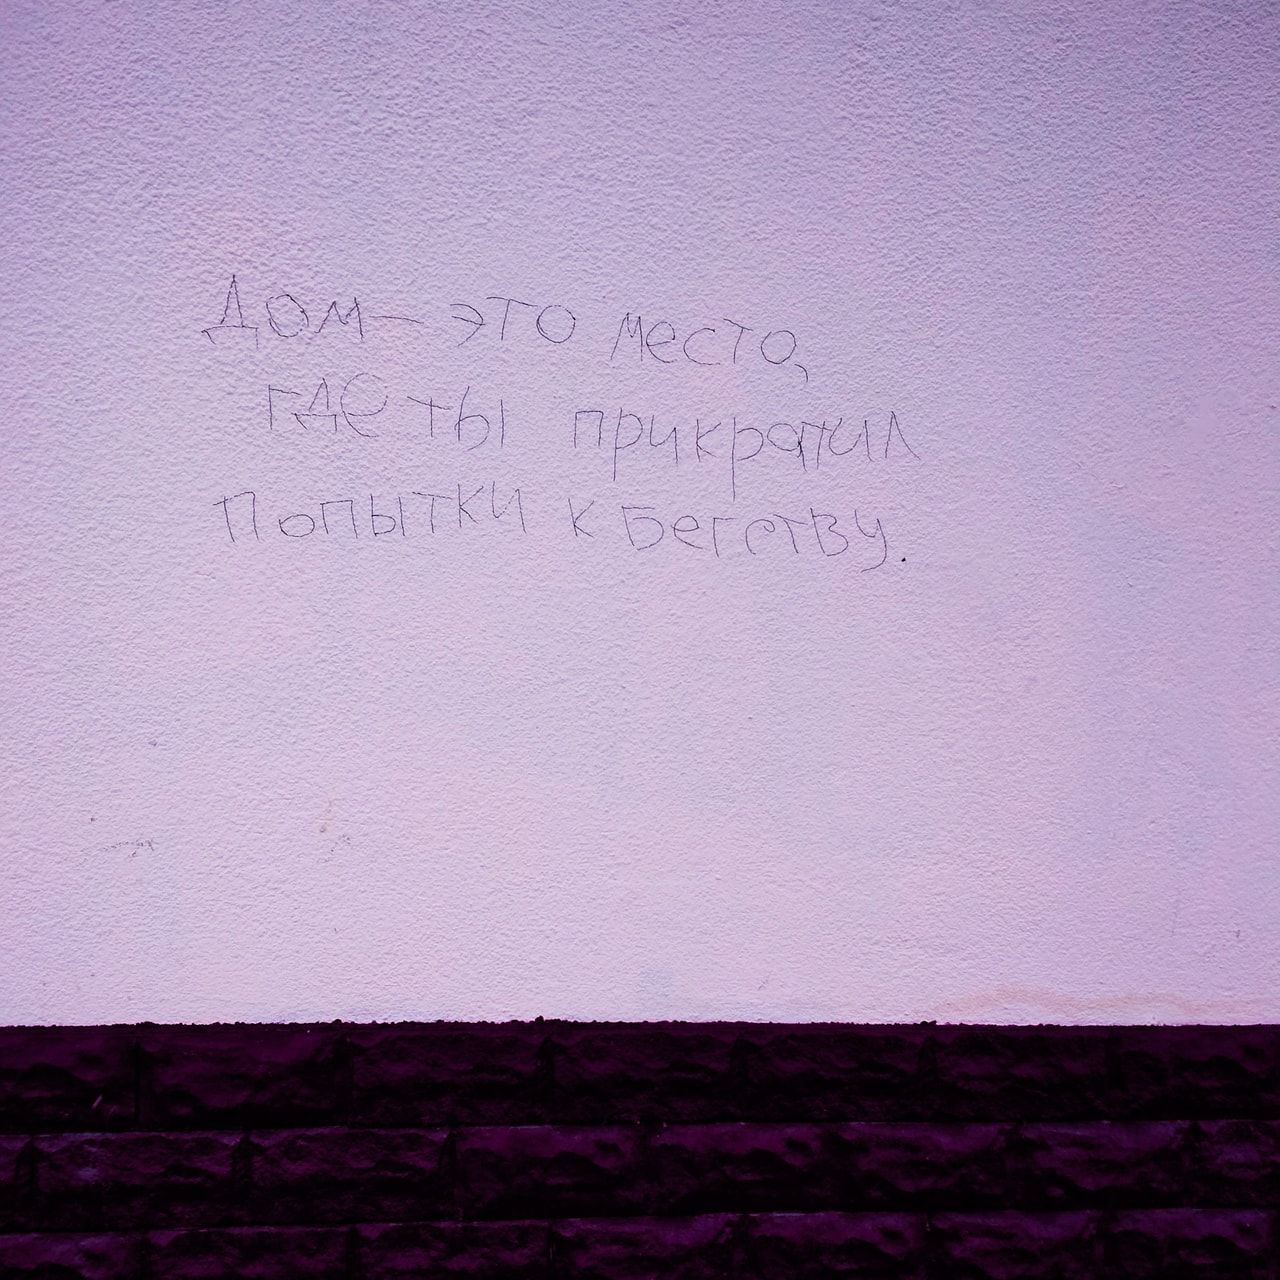 Дом — это место,
где ты прикратил
попытки к бегству.